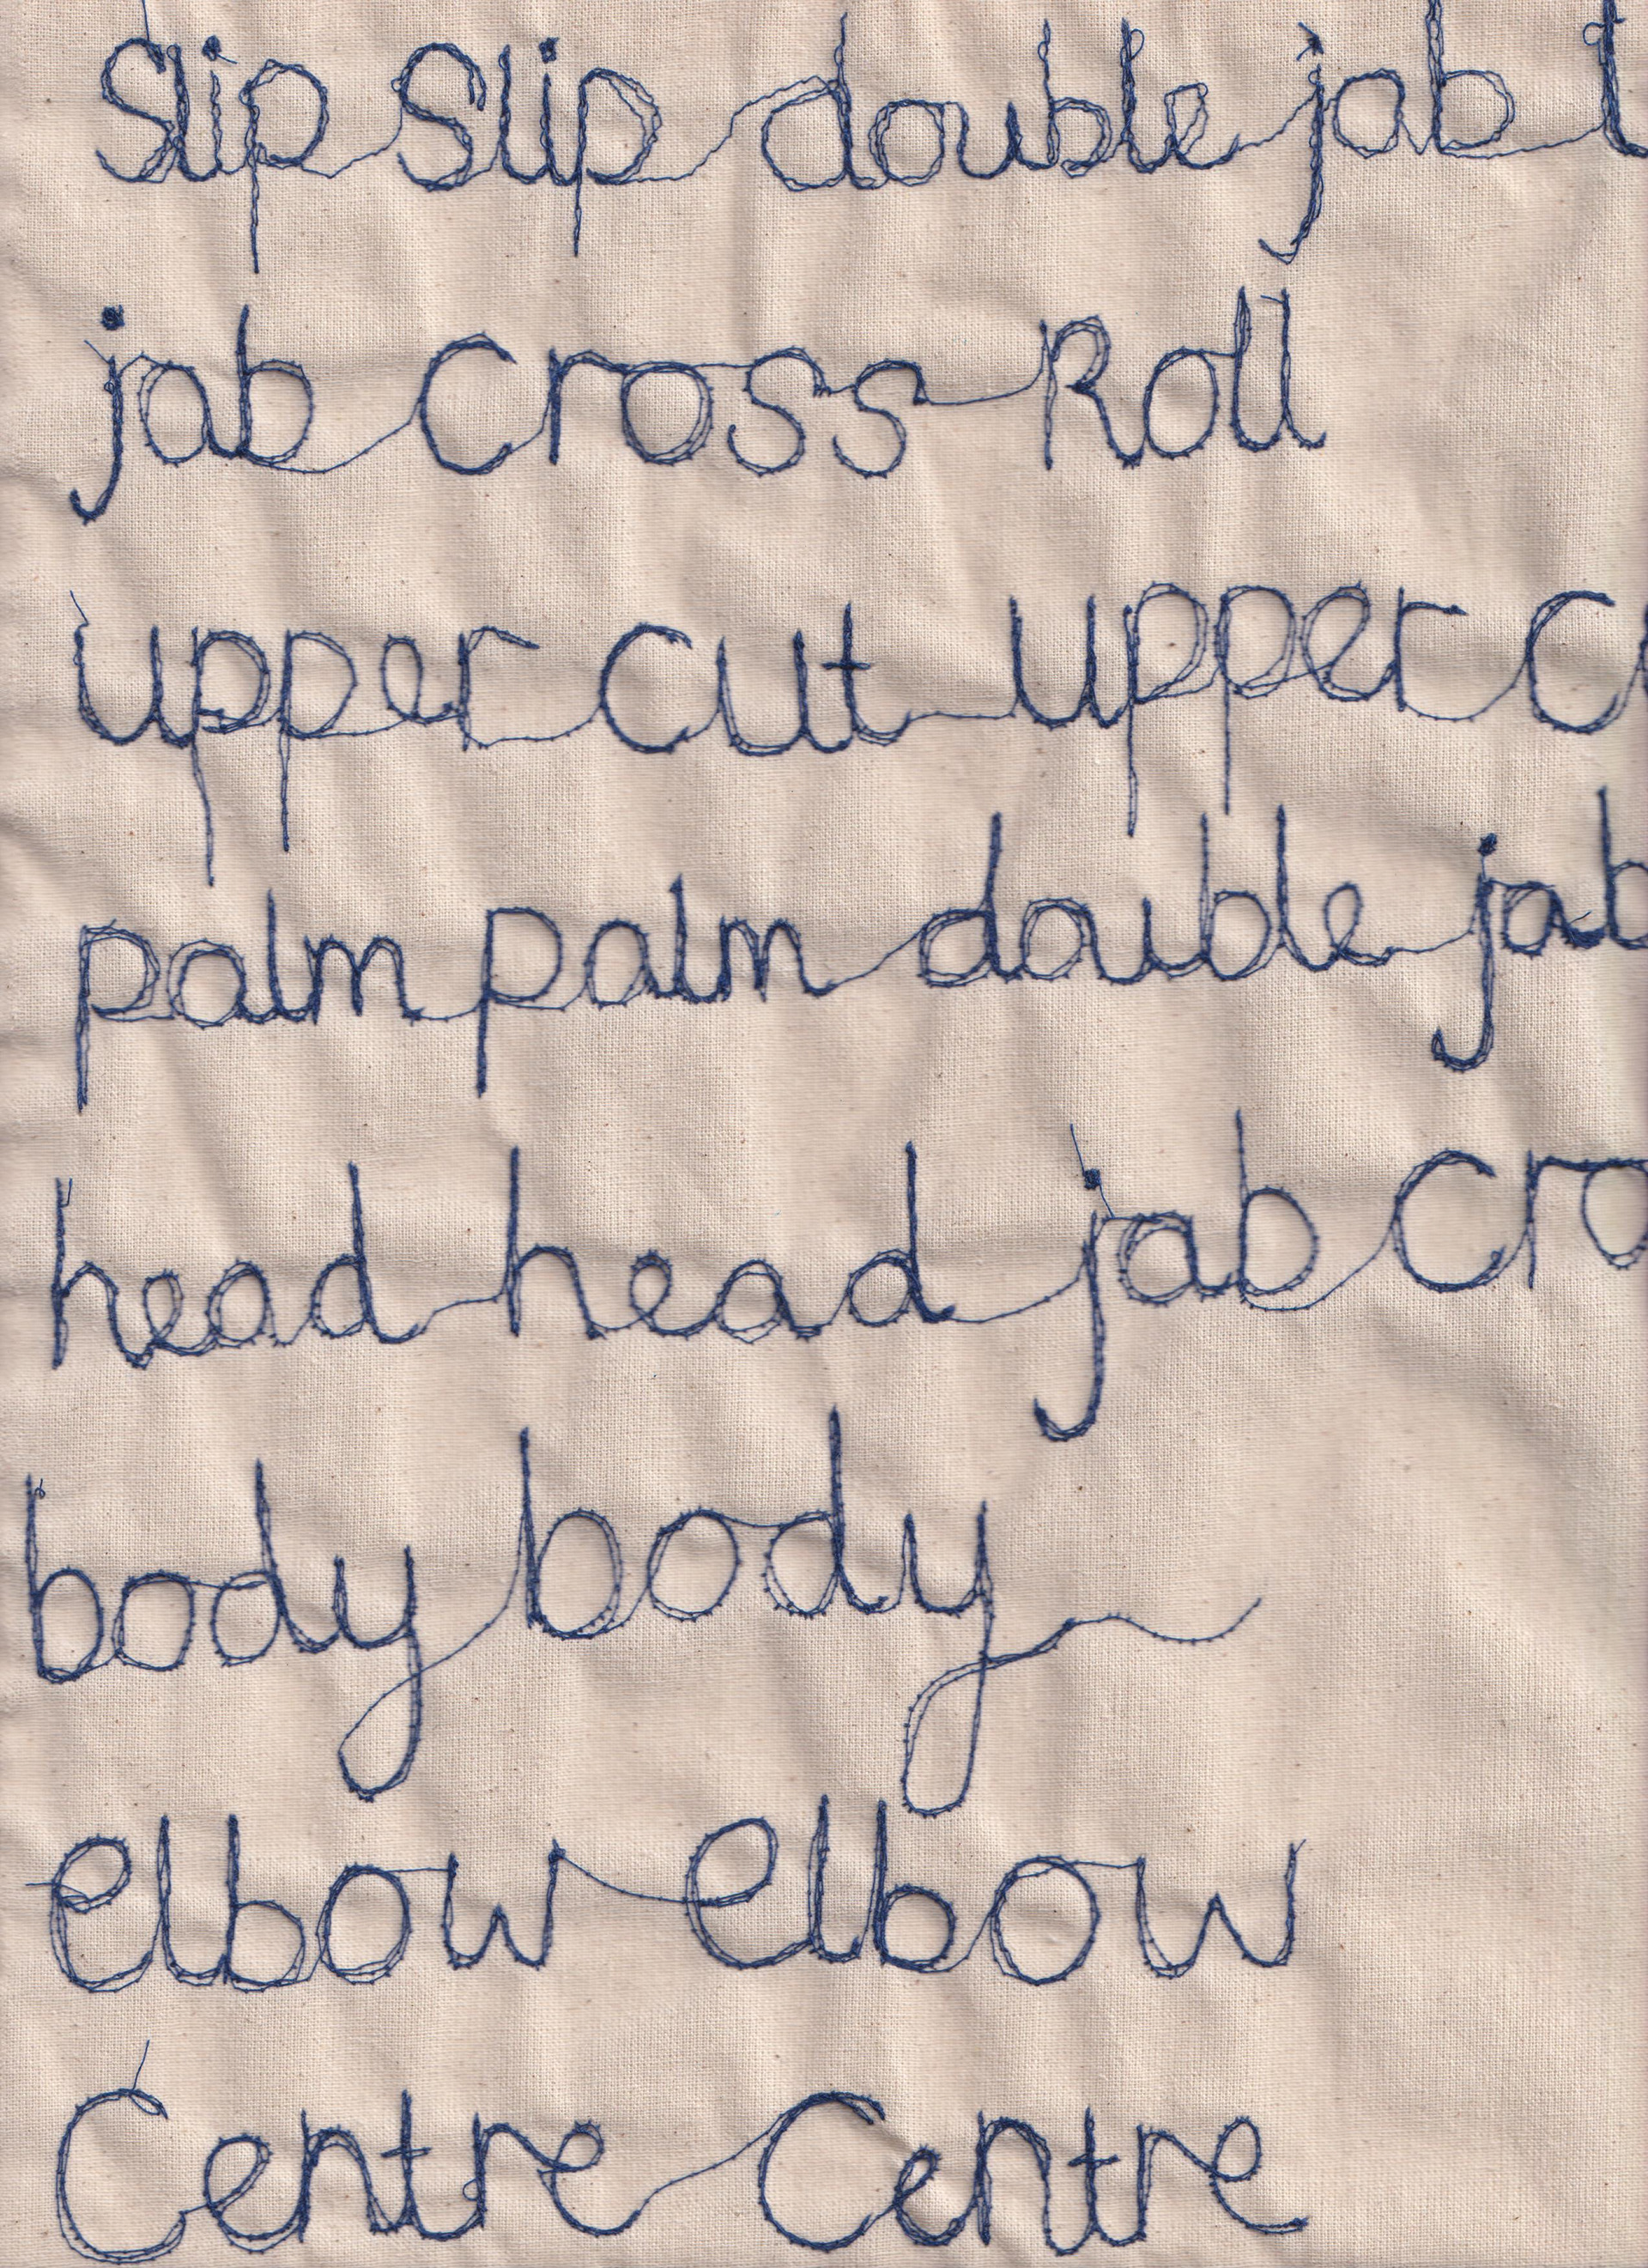 Slip Slip double jab
jab cross Roll
upper cut upper
palm palm double jab
head head jab cro
body body
elbow elbow
Centre Centre